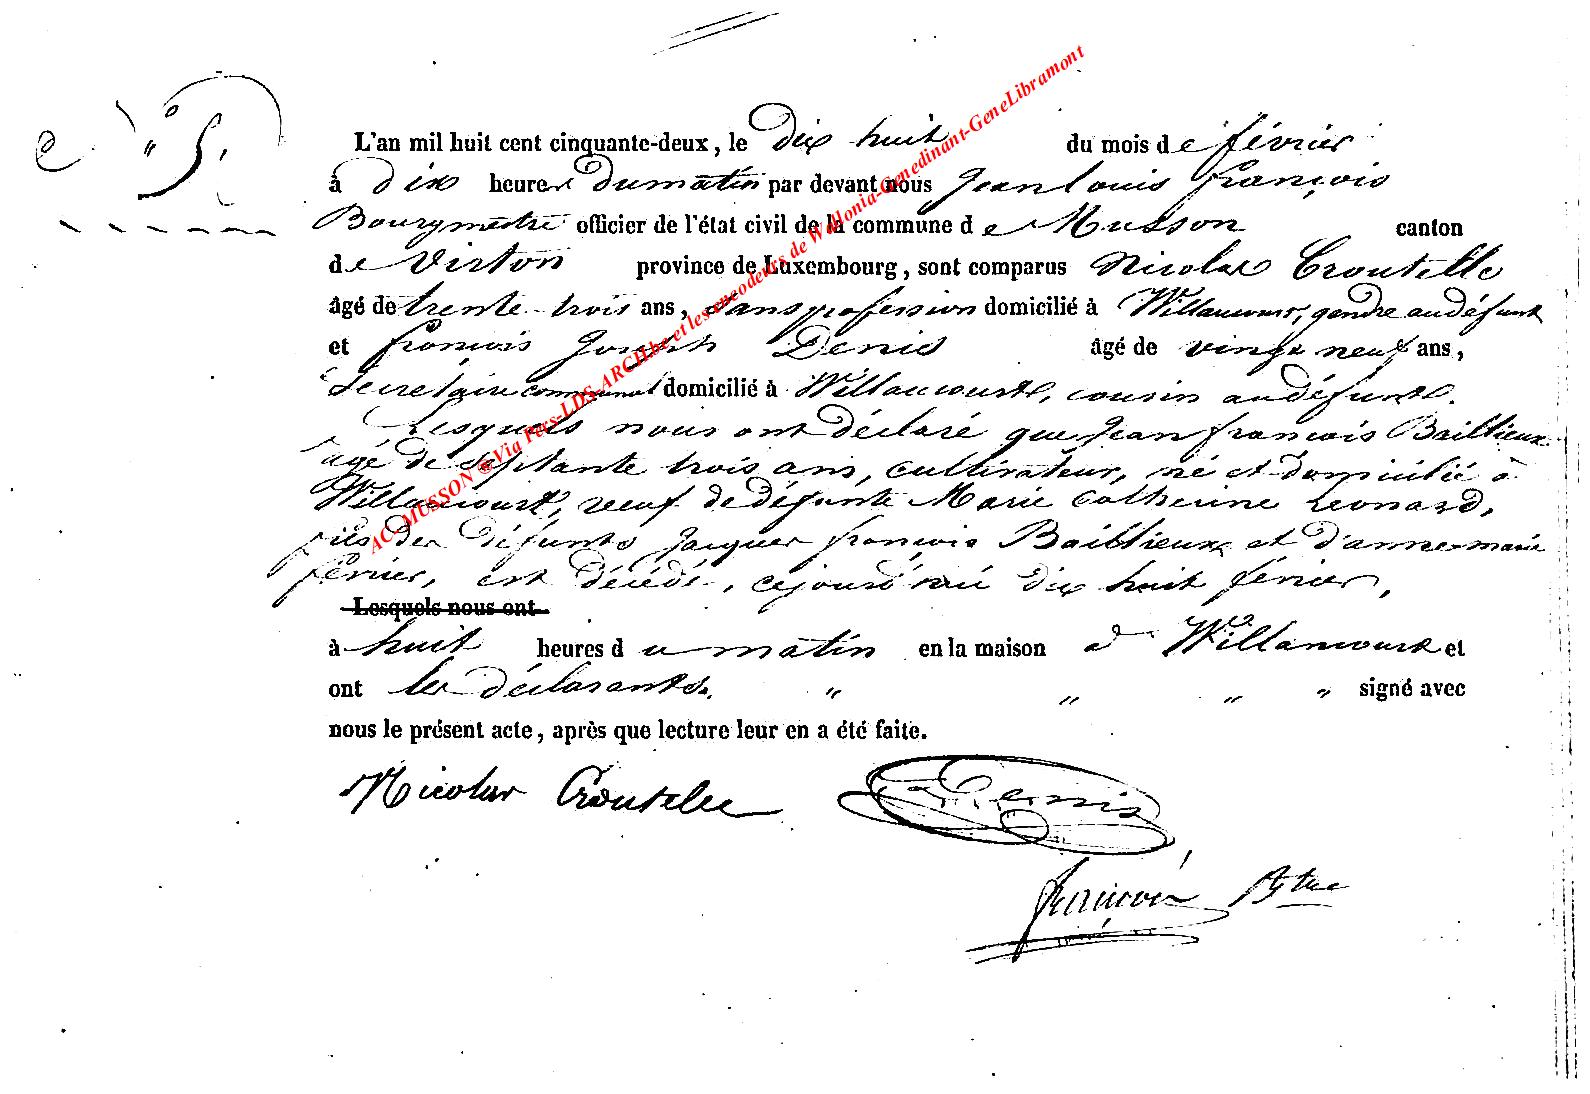 e N° 5.
L'an mil huit cent cinquante-deux, le dix huit du mois de février
à dix heures du matin par devant nous Jean Louis françois
Bourgmestre officier de l'état civil de la commune de Musson canton
de Virton province de Luxembourg, sont comparus Nicolas Croutelle
âgé de trente-trois ans, sans profession domicilié à Willancourt, gendre au défunt
et françois Joseph Denis âgé de vingt neuf ans,
Secretaire communal domicilié à Willancourt, cousin au défunt.
Lesquels nous ont déclaré que Jean françois Baillieux
agé de septante trois ans, cultivateur, né et domicilié à
Willancourt, veuf de défunte Marie Catherine Leonard,
fils des défunts Jacques françois Baillieux et d'anne marie
février, est décédé, cejourd'hui dix huit février,
Lesquels nous ont
à huit heures du matin en la maison à Willancourt et
ont les déclarants. " " " " signé avec
nous le présent acte, après que lecture leur en a été faite.
Nicolas Croutelle Denis
françois Bgtre
AC-MUSSON @Via Fecs-LDS-ARCH.be et les encodeurs de Wallonia-Genedinant-GeneLibramont